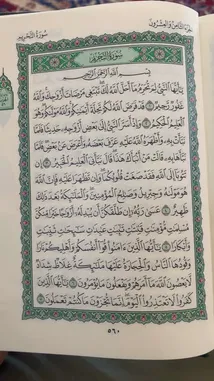 الجزء الثامن والعشرون
سورة التحريم
سُورَةُ التَّحْرِيمِ
بِسْمِ ٱللَّهِ ٱلرَّحْمَٰنِ ٱلرَّحِيمِ
يَٰٓأَيُّهَا ٱلنَّبِىُّ لِمَ تُحَرِّمُ مَآ أَحَلَّ ٱللَّهُ لَكَ تَبْتَغِى مَرْضَاتَ أَزْوَٰجِكَ وَٱللَّهُ
غَفُورٌ رَّحِيمٌ ١ قَدْ فَرَضَ ٱللَّهُ لَكُمْ تَحِلَّةَ أَيْمَٰنِكُمْ وَٱللَّهُ مَوْلَىٰكُمْ وَهُوَ
ٱلْعَلِيمُ ٱلْحَكِيمُ ٢ وَإِذْ أَسَرَّ ٱلنَّبِىُّ إِلَىٰ بَعْضِ أَزْوَٰجِهِۦ حَدِيثًا فَلَمَّا
نَبَّأَتْ بِهِۦ وَأَظْهَرَهُ ٱللَّهُ عَلَيْهِ عَرَّفَ بَعْضَهُۥ وَأَعْرَضَ عَنۢ بَعْضٍ فَلَمَّا
نَبَّأَهَا بِهِۦ قَالَتْ مَنْ أَنۢبَأَكَ هَٰذَا قَالَ نَبَّأَنِىَ ٱلْعَلِيمُ ٱلْخَبِيرُ ٣ إِن
تَتُوبَآ إِلَى ٱللَّهِ فَقَدْ صَغَتْ قُلُوبُكُمَا وَإِن تَظَٰهَرَا عَلَيْهِ فَإِنَّ ٱللَّهَ
هُوَ مَوْلَىٰهُ وَجِبْرِيلُ وَصَٰلِحُ ٱلْمُؤْمِنِينَ وَٱلْمَلَٰٓئِكَةُ بَعْدَ ذَٰلِكَ
ظَهِيرٌ ٤ عَسَىٰ رَبُّهُۥٓ إِن طَلَّقَكُنَّ أَن يُبْدِلَهُۥٓ أَزْوَٰجًا خَيْرًا مِّنكُنَّ
مُسْلِمَٰتٍ مُّؤْمِنَٰتٍ قَٰنِتَٰتٍ تَٰٓئِبَٰتٍ عَٰبِدَٰتٍ سَٰٓئِحَٰتٍ ثَيِّبَٰتٍ
وَأَبْكَارًا ٥ يَٰٓأَيُّهَا ٱلَّذِينَ ءَامَنُوا۟ قُوٓا۟ أَنفُسَكُمْ وَأَهْلِيكُمْ نَارًا
وَقُودُهَا ٱلنَّاسُ وَٱلْحِجَارَةُ عَلَيْهَا مَلَٰٓئِكَةٌ غِلَاظٌ شِدَادٌ
لَّا يَعْصُونَ ٱللَّهَ مَآ أَمَرَهُمْ وَيَفْعَلُونَ مَا يُؤْمَرُونَ ٦ يَٰٓأَيُّهَا ٱلَّذِينَ
كَفَرُوا۟ لَا تَعْتَذِرُوا۟ ٱلْيَوْمَ إِنَّمَا تُجْزَوْنَ مَا كُنتُمْ تَعْمَلُونَ ٧
٥٦٠